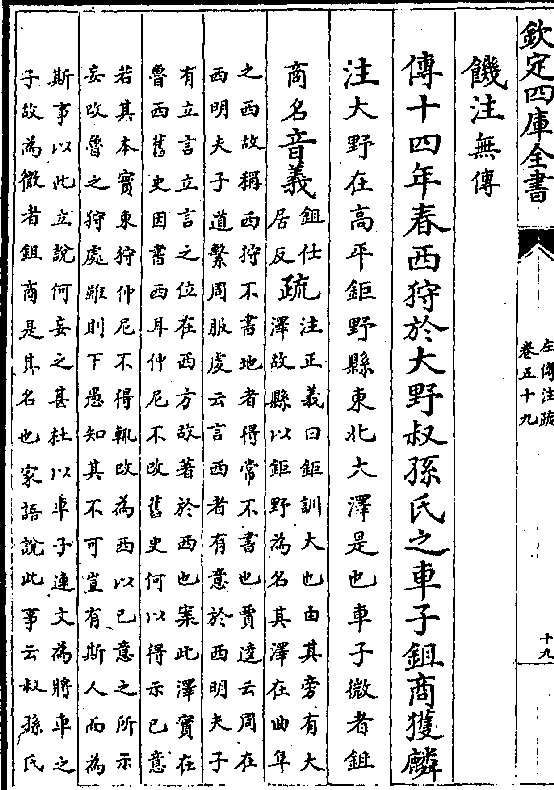 欽定四庫全書
左傳注疏
卷五十九
十九
饑注無傳
傳十四年春西狩於大野叔孫氏之車子鉏商獲麟
注大野在高平鉅野縣東北大澤是也車子微者鉏
商名音義鉏仕
居反疏注正義曰鉅訓大也由其旁有大
澤故縣以鉅野為名其澤在曲阜
之西故稱西狩不書地者得常不書也賈逵云周在
西明夫子道繫周服虔云言西者有意於西明夫子
有立言立言之位在西方故著於西也案此澤實在
魯西舊史因書西耳仲尼不改舊史何以得示己意
若其本實東狩仲尼不得輒改為西以己意之所示
妄改魯之狩處雖則下愚知其不可豈有斯人而為
斯事以此立說何妄之甚杜以車子連文為將車之
子故為微者鉏商是其名也家語說此事云叔孫氏